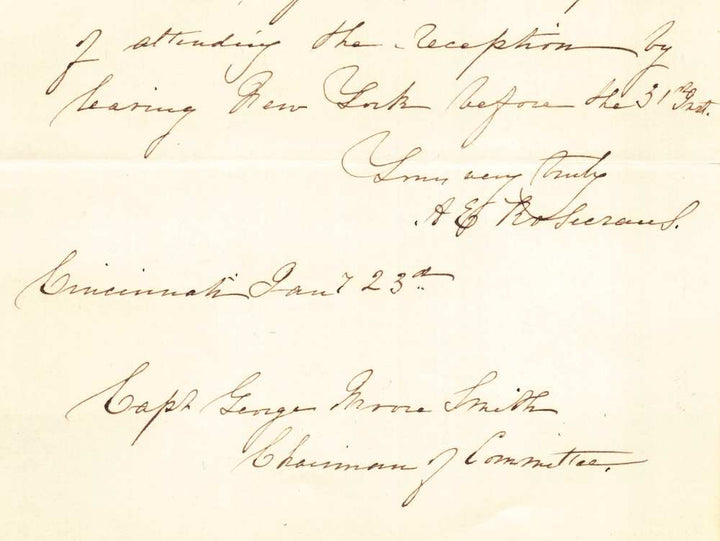 of attending the reception by
leaving New York before the 31st Inst.
Yours very truly
A E Rosecrans.
Cincinnati Jany 23d
Capt George Moore Smith
Chairman of Committee.